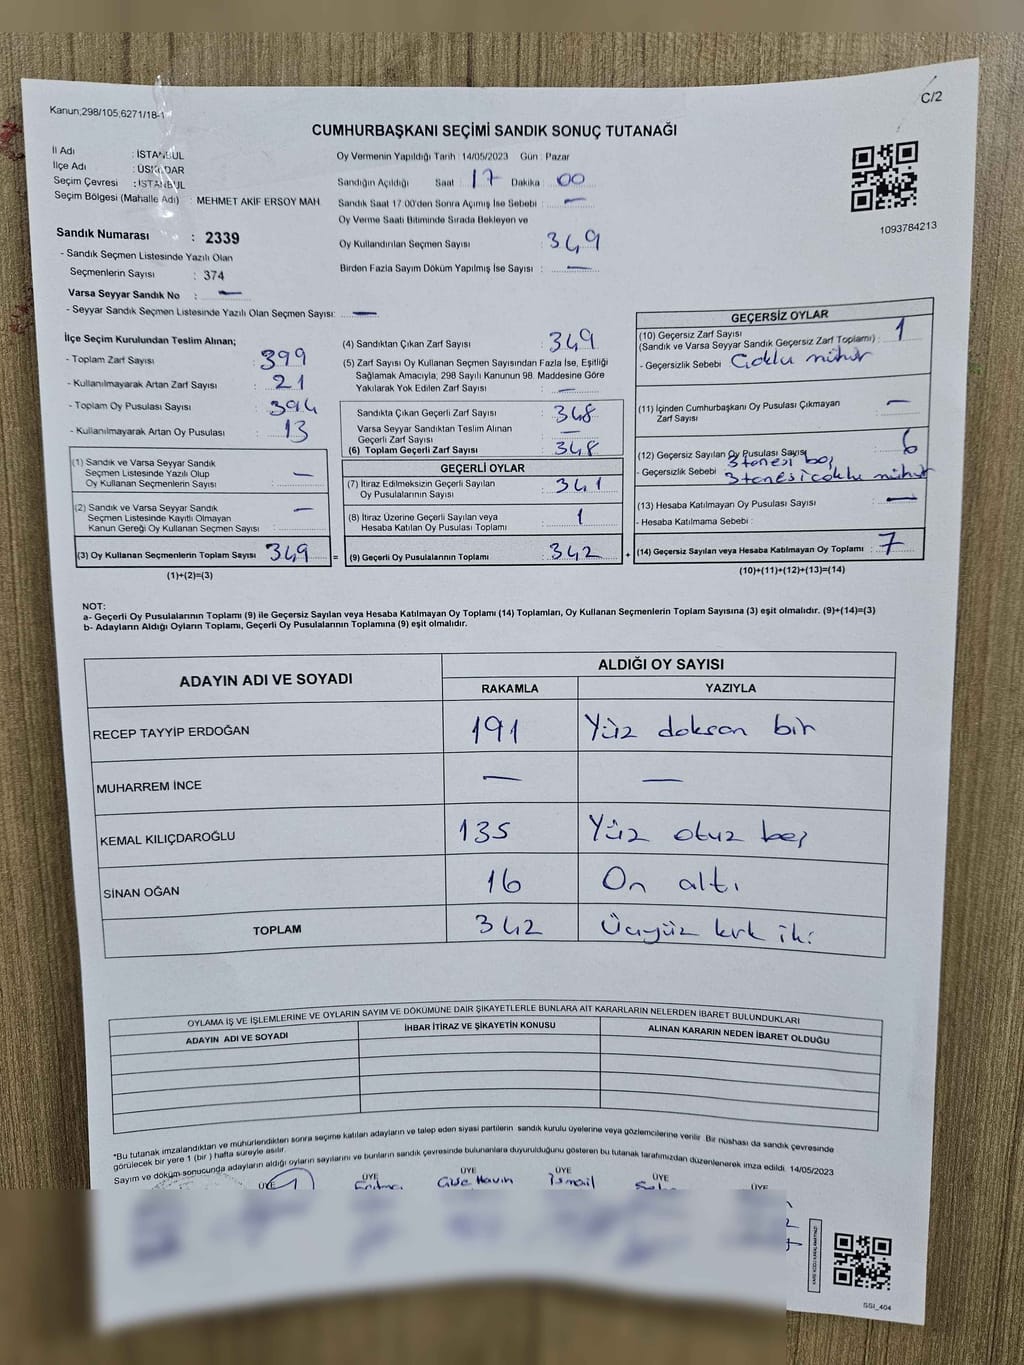 Kanun;298/105,6271/18-1
C/2
CUMHURBAŞKANI SEÇİMİ SANDIK SONUÇ TUTANAĞI
İl Adı : İSTANBUL
İlçe Adı : ÜSKÜDAR
Seçim Çevresi : İSTANBUL
Seçim Bölgesi (Mahalle Adı) : MEHMET AKİF ERSOY MAH
Sandık Numarası : 2339
- Sandık Seçmen Listesinde Yazılı Olan
Seçmenlerin Sayısı : 374
Varsa Seyyar Sandık No : —
- Seyyar Sandık Seçmen Listesinde Yazılı Olan Seçmen Sayısı: —
Oy Vermenin Yapıldığı Tarih : 14/05/2023 Gün : Pazar
Sandığın Açıldığı Saat 17 Dakika 00
Sandık Saat 17.00'den Sonra Açımış İse Sebebi : —
Oy Verme Saati Bitiminde Sırada Bekleyen ve
Oy Kullandırılan Seçmen Sayısı : 349
Birden Fazla Sayım Döküm Yapılmış İse Sayısı : —
1093784213
İlçe Seçim Kurulundan Teslim Alınan;
- Toplam Zarf Sayısı : 399
- Kullanılmayarak Artan Zarf Sayısı : 21
- Toplam Oy Pusulası Sayısı : 394
- Kullanılmayarak Artan Oy Pusulası : 13
(1) Sandık ve Varsa Seyyar Sandık
Seçmen Listesinde Yazılı Olup
Oy Kullanan Seçmenlerin Sayısı : —
(2) Sandık ve Varsa Seyyar Sandık
Seçmen Listesinde Kayıtlı Olmayan
Kanun Gereği Oy Kullanan Seçmen Sayısı : —
(3) Oy Kullanan Seçmenlerin Toplam Sayısı : 349 =
(1)+(2)=(3)
(4) Sandıktan Çıkan Zarf Sayısı : 349
(5) Zarf Sayısı Oy Kullanan Seçmen Sayısından Fazla İse, Eşitliği
Sağlamak Amacıyla; 298 Sayılı Kanunun 98. Maddesine Göre
Yakılarak Yok Edilen Zarf Sayısı : —
Sandıkta Çıkan Geçerli Zarf Sayısı : 348
Varsa Seyyar Sandıktan Teslim Alınan
Geçerli Zarf Sayısı : —
(6) Toplam Geçerli Zarf Sayısı : 348
GEÇERLİ OYLAR
(7) İtiraz Edilmeksizin Geçerli Sayılan
Oy Pusulalarının Sayısı : 341
(8) İtiraz Üzerine Geçerli Sayılan veya
Hesaba Katılan Oy Pusulası Toplamı : 1
(9) Geçerli Oy Pusulalarının Toplamı : 342 +
GEÇERSİZ OYLAR
(10) Geçersiz Zarf Sayısı
(Sandık ve Varsa Seyyar Sandık Geçersiz Zarf Toplamı) : 1
- Geçersizlik Sebebi Çoklu mühür
(11) İçinden Cumhurbaşkanı Oy Pusulası Çıkmayan
Zarf Sayısı : —
(12) Geçersiz Sayılan Oy Pusulası Sayısı : 6
3 tanesi boş
- Geçersizlik Sebebi : 3 tanesi çoklu mühür
(13) Hesaba Katılmayan Oy Pusulası Sayısı : —
- Hesaba Katılmama Sebebi :
(14) Geçersiz Sayılan veya Hesaba Katılmayan Oy Toplamı : 7
(10)+(11)+(12)+(13)=(14)
NOT:
a- Geçerli Oy Pusulalarının Toplamı (9) ile Geçersiz Sayılan veya Hesaba Katılmayan Oy Toplamı (14) Toplamları, Oy Kullanan Seçmenlerin Toplam Sayısına (3) eşit olmalıdır. (9)+(14)=(3)
b- Adayların Aldığı Oyların Toplamı, Geçerli Oy Pusulalarının Toplamına (9) eşit olmalıdır.
ADAYIN ADI VE SOYADI
ALDIĞI OY SAYISI
RAKAMLA YAZIYLA
RECEP TAYYİP ERDOĞAN 191 Yüz doksan bir
MUHARREM İNCE — —
KEMAL KILIÇDAROĞLU 135 Yüz otuz beş
SİNAN OĞAN 16 On altı
TOPLAM 342 Üçyüz kırk iki
OYLAMA İŞ VE İŞLEMLERİNE VE OYLARIN SAYIM VE DÖKÜMÜNE DAİR ŞİKAYETLERLE BUNLARA AİT KARARLARIN NELERDEN İBARET BULUNDUKLARI
ADAYIN ADI VE SOYADI İHBAR İTİRAZ VE ŞİKAYETİN KONUSU ALINAN KARARIN NEDEN İBARET OLDUĞU
*Bu tutanak imzalandıktan ve mühürlendikten sonra seçime katılan adayların ve talep eden siyasi partilerin sandık kurulu üyelerine veya gözlemcilerine verilir. Bir nüshası da sandık çevresinde
görülecek bir yere 1 (bir) hafta süreyle asılır.
Sayım ve döküm sonucunda adayların aldığı oyların sayılarını ve bunların sandık çevresinde bulunanlara duyurulduğunu gösteren bu tutanak tarafımızdan düzenlenerek imza edildi. 14/05/2023
ÜYE ÜYE ÜYE ÜYE ÜYE ÜYE
İsmail
SSI_404